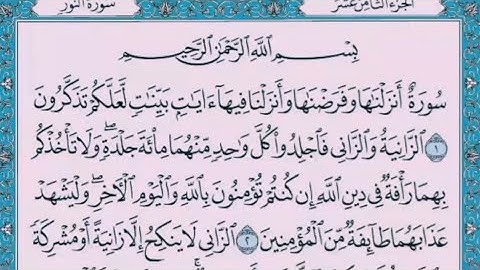 سورة النور
الجزء الثامن عشر
بِسْمِ ٱللَّهِ ٱلرَّحْمَٰنِ ٱلرَّحِيمِ
سُورَةٌ أَنزَلْنَٰهَا وَفَرَضْنَٰهَا وَأَنزَلْنَا فِيهَآ ءَايَٰتٍۭ بَيِّنَٰتٍ لَّعَلَّكُمْ تَذَكَّرُونَ
١ ٱلزَّانِيَةُ وَٱلزَّانِي فَٱجْلِدُوا۟ كُلَّ وَٰحِدٍ مِّنْهُمَا مِا۟ئَةَ جَلْدَةٍ ۖ وَلَا تَأْخُذْكُم
بِهِمَا رَأْفَةٌ فِي دِينِ ٱللَّهِ إِن كُنتُمْ تُؤْمِنُونَ بِٱللَّهِ وَٱلْيَوْمِ ٱلْءَاخِرِ ۖ وَلْيَشْهَدْ
عَذَابَهُمَا طَآئِفَةٌ مِّنَ ٱلْمُؤْمِنِينَ ٢ ٱلزَّانِي لَا يَنكِحُ إِلَّا زَانِيَةً أَوْ مُشْرِكَةً